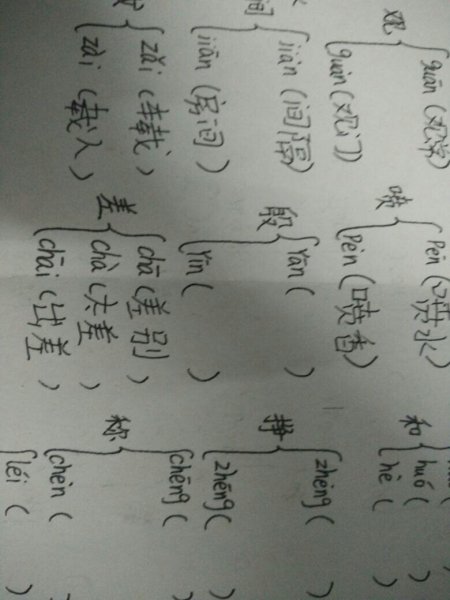 观
guān (观赏)
guàn (观门)
间
jiàn (间隔)
jiān (房间)
zǎi (转载)
zài (载入)
喷
pēn (喷水)
pèn (喷香)
殷
yān ( )
yīn ( )
差
chā (差别)
chà ( 差)
chāi (出差)
和
huó ( )
hè ( )
挣
zhèng ( )
zhēng ( )
称
chēng ( )
chèn ( )
léi ( )